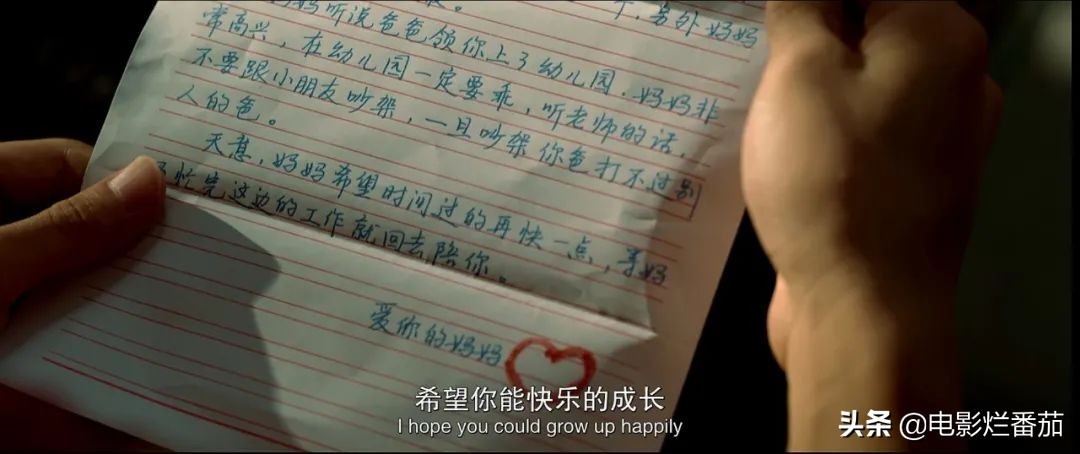 。
个，另外妈妈
妈听说爸爸领你上了幼儿园．妈妈非
常高兴，在幼儿园一定要乖，听老师的话，
不要跟小朋友吵架，一旦吵架你爸打不过别
人的爸。
天意，妈妈希望时间过的再快一点，等妈
妈忙完这边的工作就回去陪你。
爱你的妈妈
希望你能快乐的成长
I hope you could grow up happily
头条 @电影烂番茄